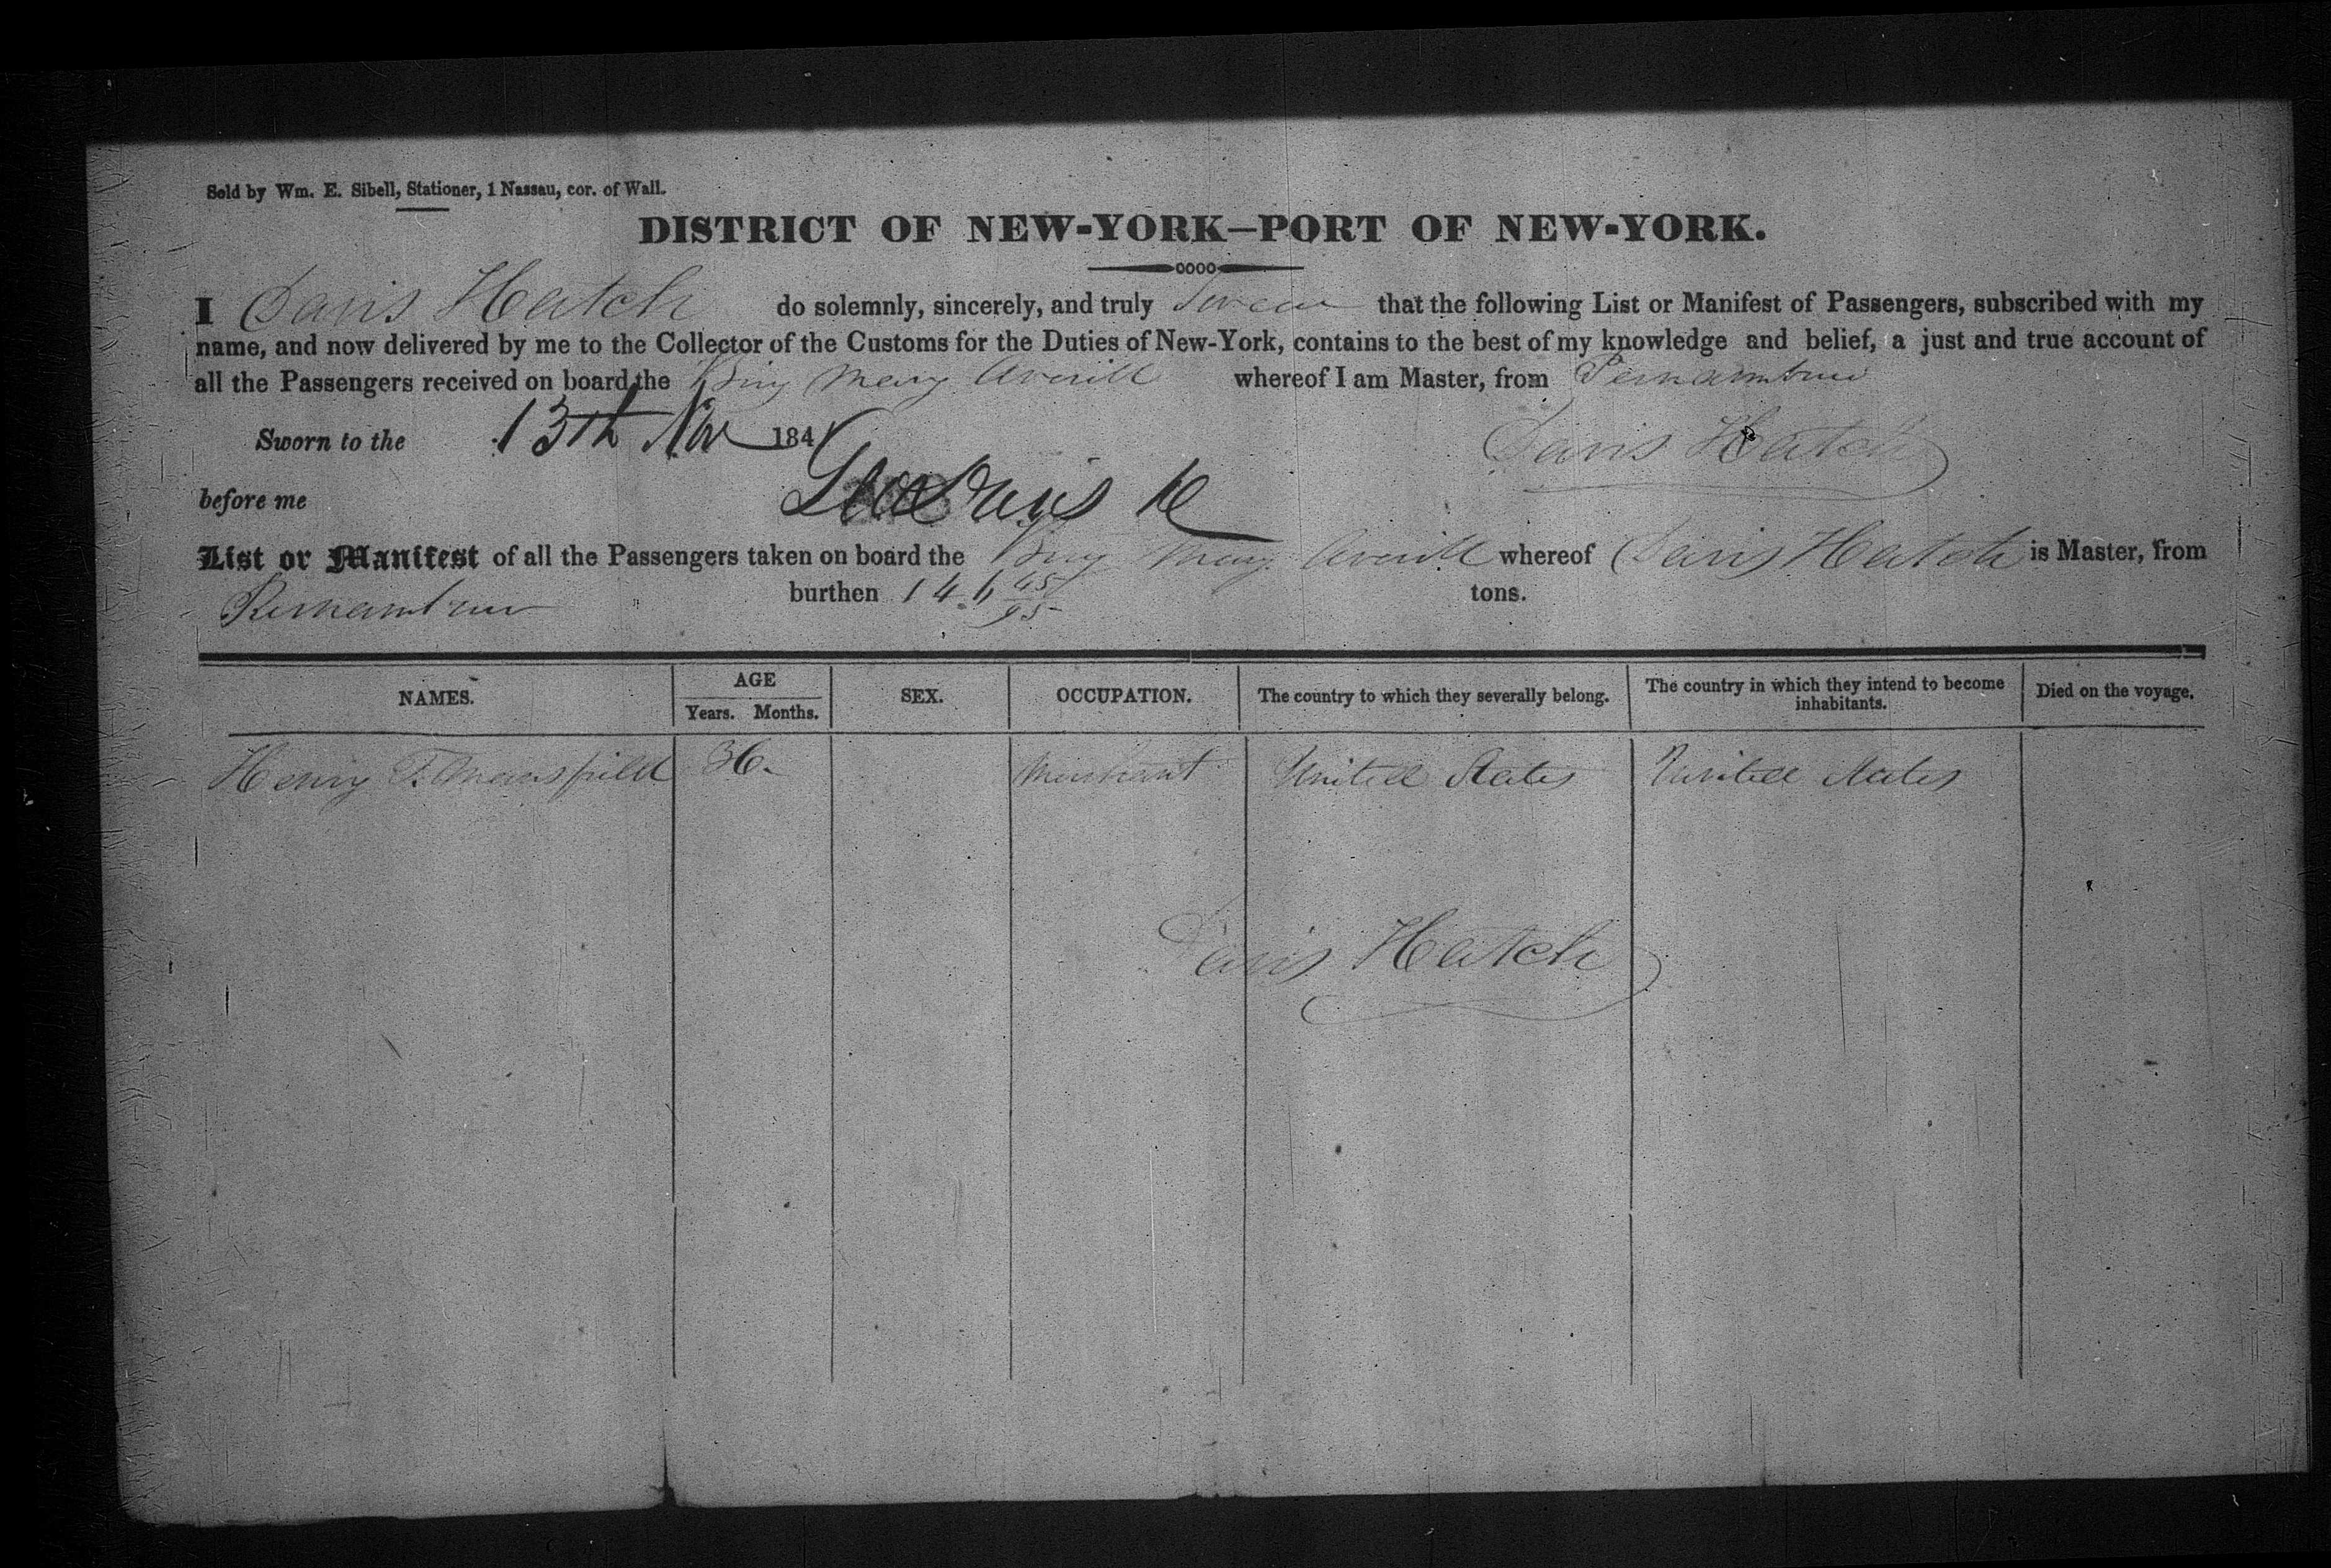 Sold by Wm. E. Sibell, Stationer, 1 Nassau, cor. of Wall.
DISTRICT OF NEW-YORK—PORT OF NEW-YORK.
I Davis Hatch do solemnly, sincerely, and truly Swear that the following List or Manifest of Passengers, subscribed with my
name, and now delivered by me to the Collector of the Customs for the Duties of New-York, contains to the best of my knowledge and belief, a just and true account of
all the Passengers received on board the Brig Mary Averill whereof I am Master, from Pernambuco
Sworn to the 13th Nov 184
Davis Hatch
before me
List or Manifest of all the Passengers taken on board the Brig Mary Averill whereof Davis Hatch is Master, from
Pernambuco burthen 146 45/95 tons.
NAMES. AGE Years. Months. SEX. OCCUPATION. The country to which they severally belong. The country in which they intend to become inhabitants. Died on the voyage.
Henry F. Mansfield 36 Merchant United States United States
Davis Hatch